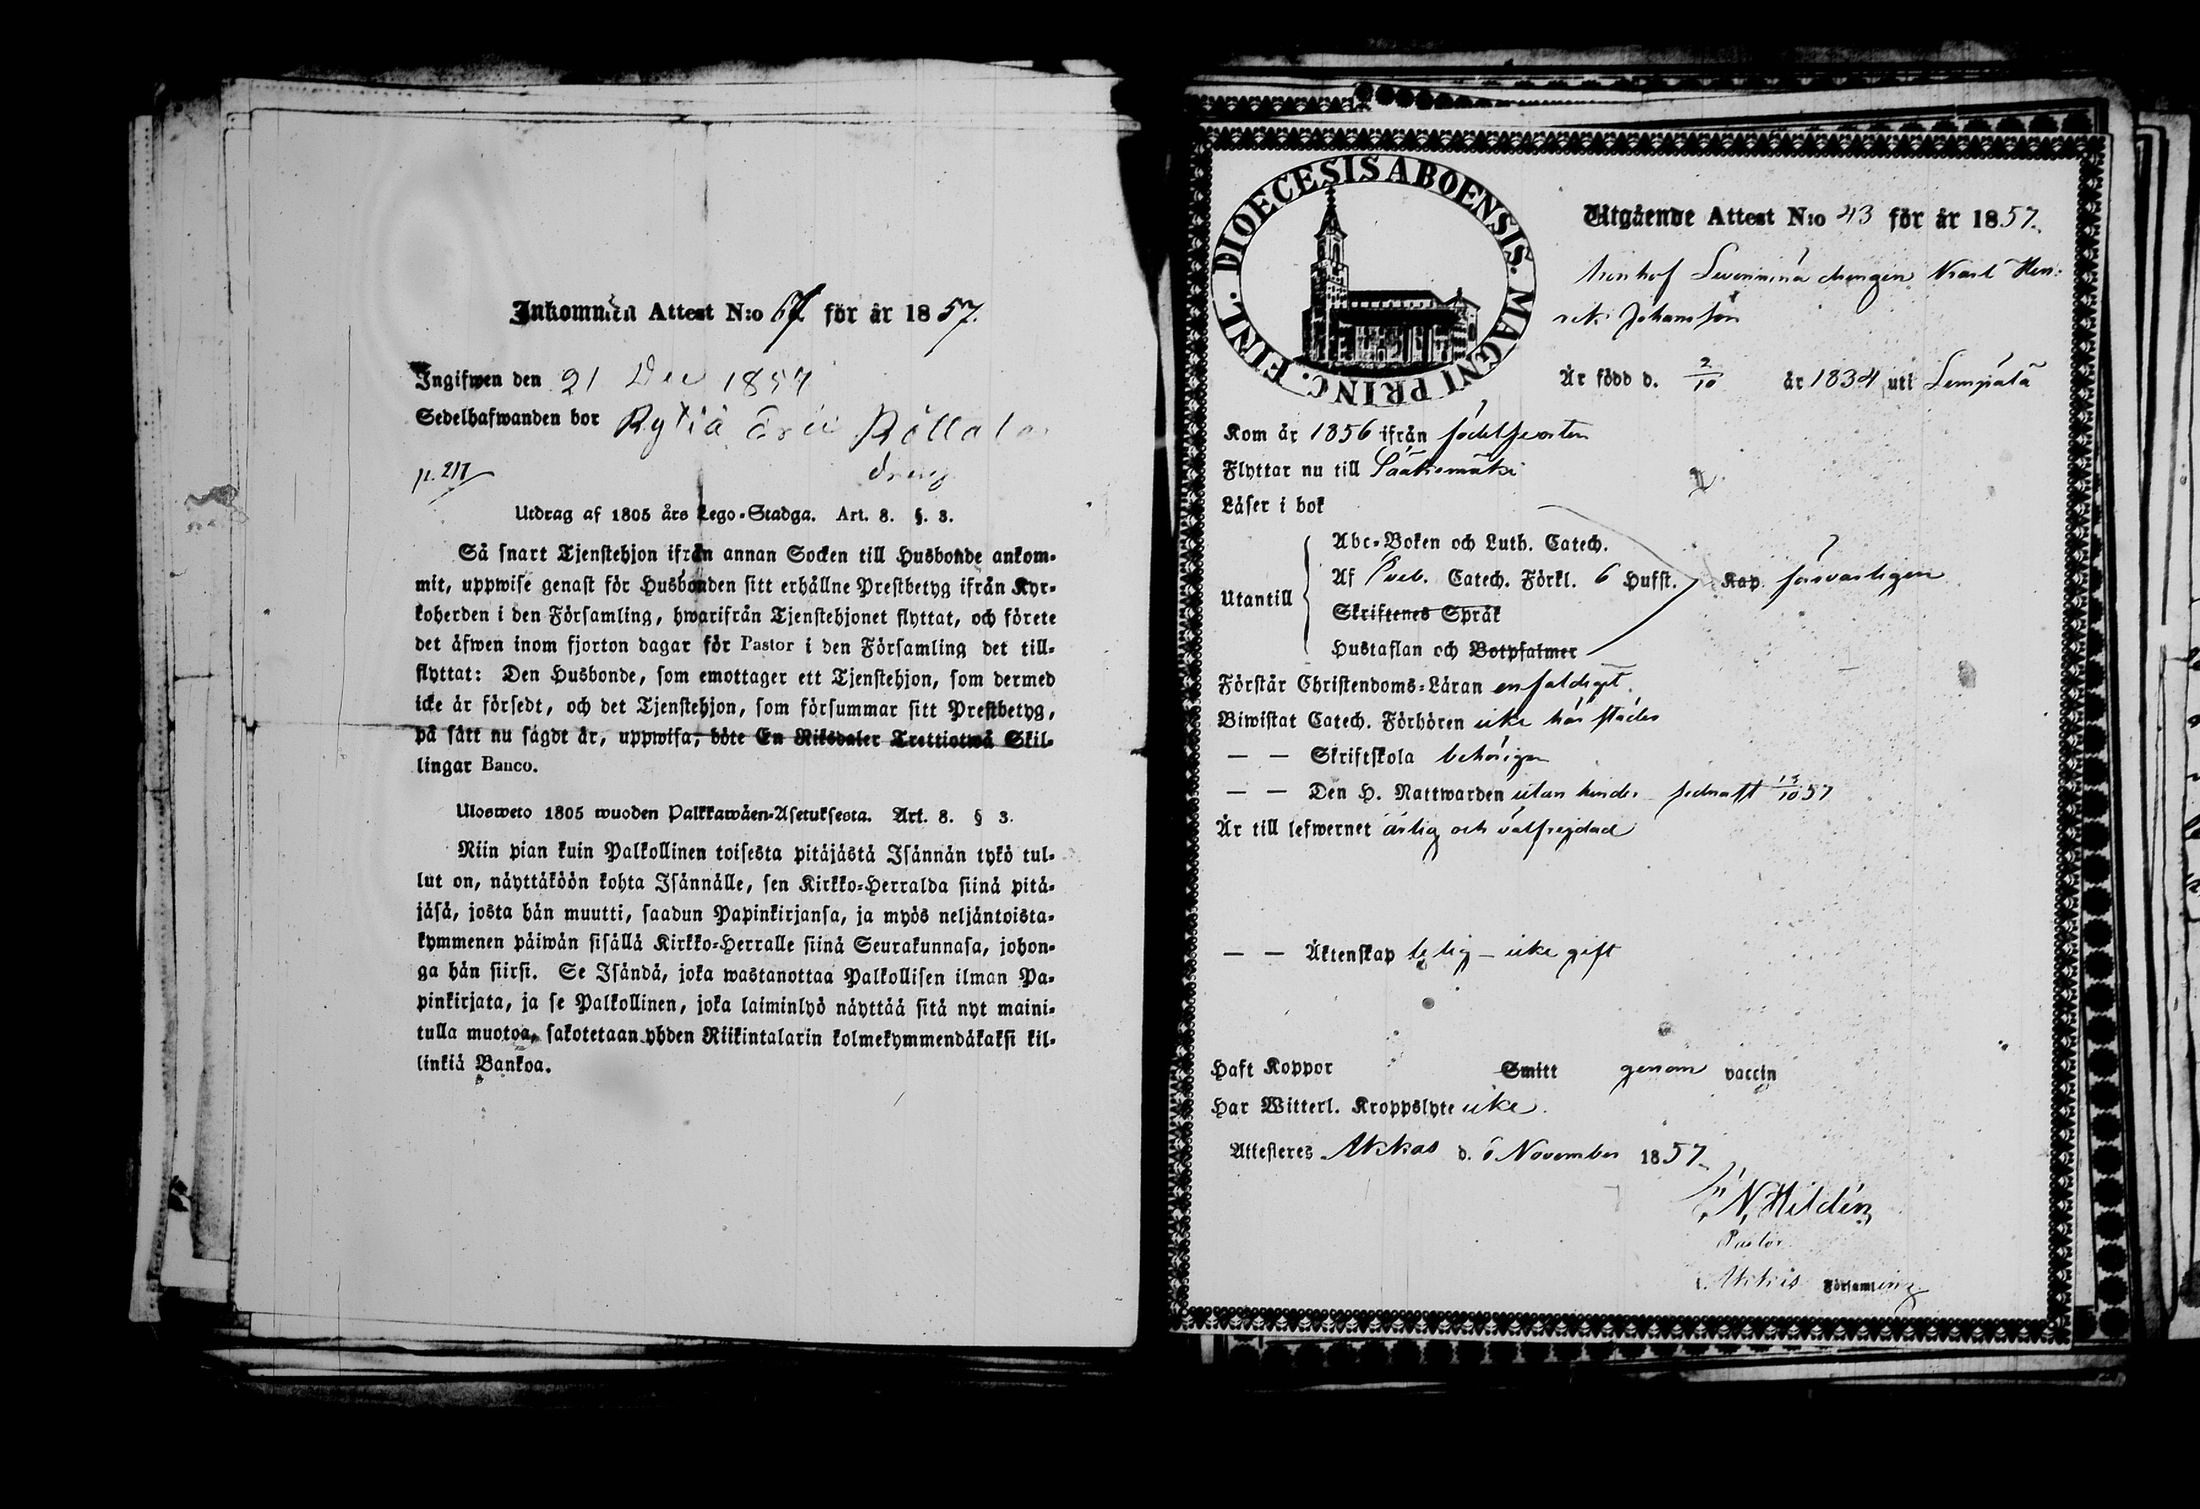 Inkommen Attest N:o 67 för år 1857.
Ingifwen den 21 Dec 1857
Sedelhafwanden bor Rytiä Eric Röllola
p. 217 dräng
Utdrag af 1805 års Lego-Stadga. Art. 8. §. 3.
Så snart Tjenstehjon ifrån annan Socken till Husbonde ankom-
mit, uppwise genast för Husbonden sitt erhållne Prestbetyg ifrån Kyr-
koherden i den Församling, hwarifrån Tjenstehjonet flyttat, och förete
det äfwen inom fjorton dagar för Pastor i den Församling det till-
flyttat: Den Husbonde, som emottager ett Tjenstehjon, som dermed
icke är försedt, och det Tjenstehjon, som försummar sitt Prestbetyg,
på sätt nu sagdt är, uppwisa, böte En Riksdaler Trettiotwå Skil-
lingar Banco.
Ulosweto 1805 wuoden Palkkawäen-Asetuksesta. Art. 8. § 3.
Niin pian kuin Palkollinen toisesta pitäjästä Isännän tykö tul-
lut on, näyttäköön kohta Isännälle, sen Kirkko-Herralda siinä pitä-
jäsä, josta hän muutti, saadun Papinkirjansa, ja myös neljäntoista-
kymmenen päiwän sisällä Kirkko-Herralle siinä Seurakunnasa, johon-
ga hän siirsi. Se Isändä, joka wastanottaa Palkollisen ilman Pa-
pinkirjata, ja se Palkollinen, joka laiminlyö näyttää sitä nyt maini-
tulla muotoa, sakotetaan yhden Riikintalarin kolmekymmendäkaksi kil-
linkiä Bankoa.
DIOECESIS ABOENSIS. MAGNI PRINC. FINL.
Utgående Attest N:o 43 för år 1857.
drengen Karl Hen-
rik Johansson
Är född d. 2/10 år 1834 uti Lempälä
Kom år 1856 ifrån födelseorten
Flyttar nu till Sääksmäki
Läser i bok
Abc-Boken och Luth. Catech.
Utantill Af Sveb. Catech. Förkl. 6 Hufst. Kap försvarligen
Skriftenes Språk
Hustaflan och Botpsalmer
Förstår Christendoms-Läran enfaldigt.
Biwistat Catech. Förhören icke här städes
— — Skriftskola behörigen
— — Den H. Nattwarden utan hinder sednast 13/10 57
Är till lefwernet ärlig och välfrejdad
— — Äktenskap ledig - icke gift
Haft Koppor Smitt genom vaccin
Har Witterl. Kroppslyte icke.
Attesteres Akkas d. 6 November 1857.
N. Hildén
Pastor
i Akkas Församling